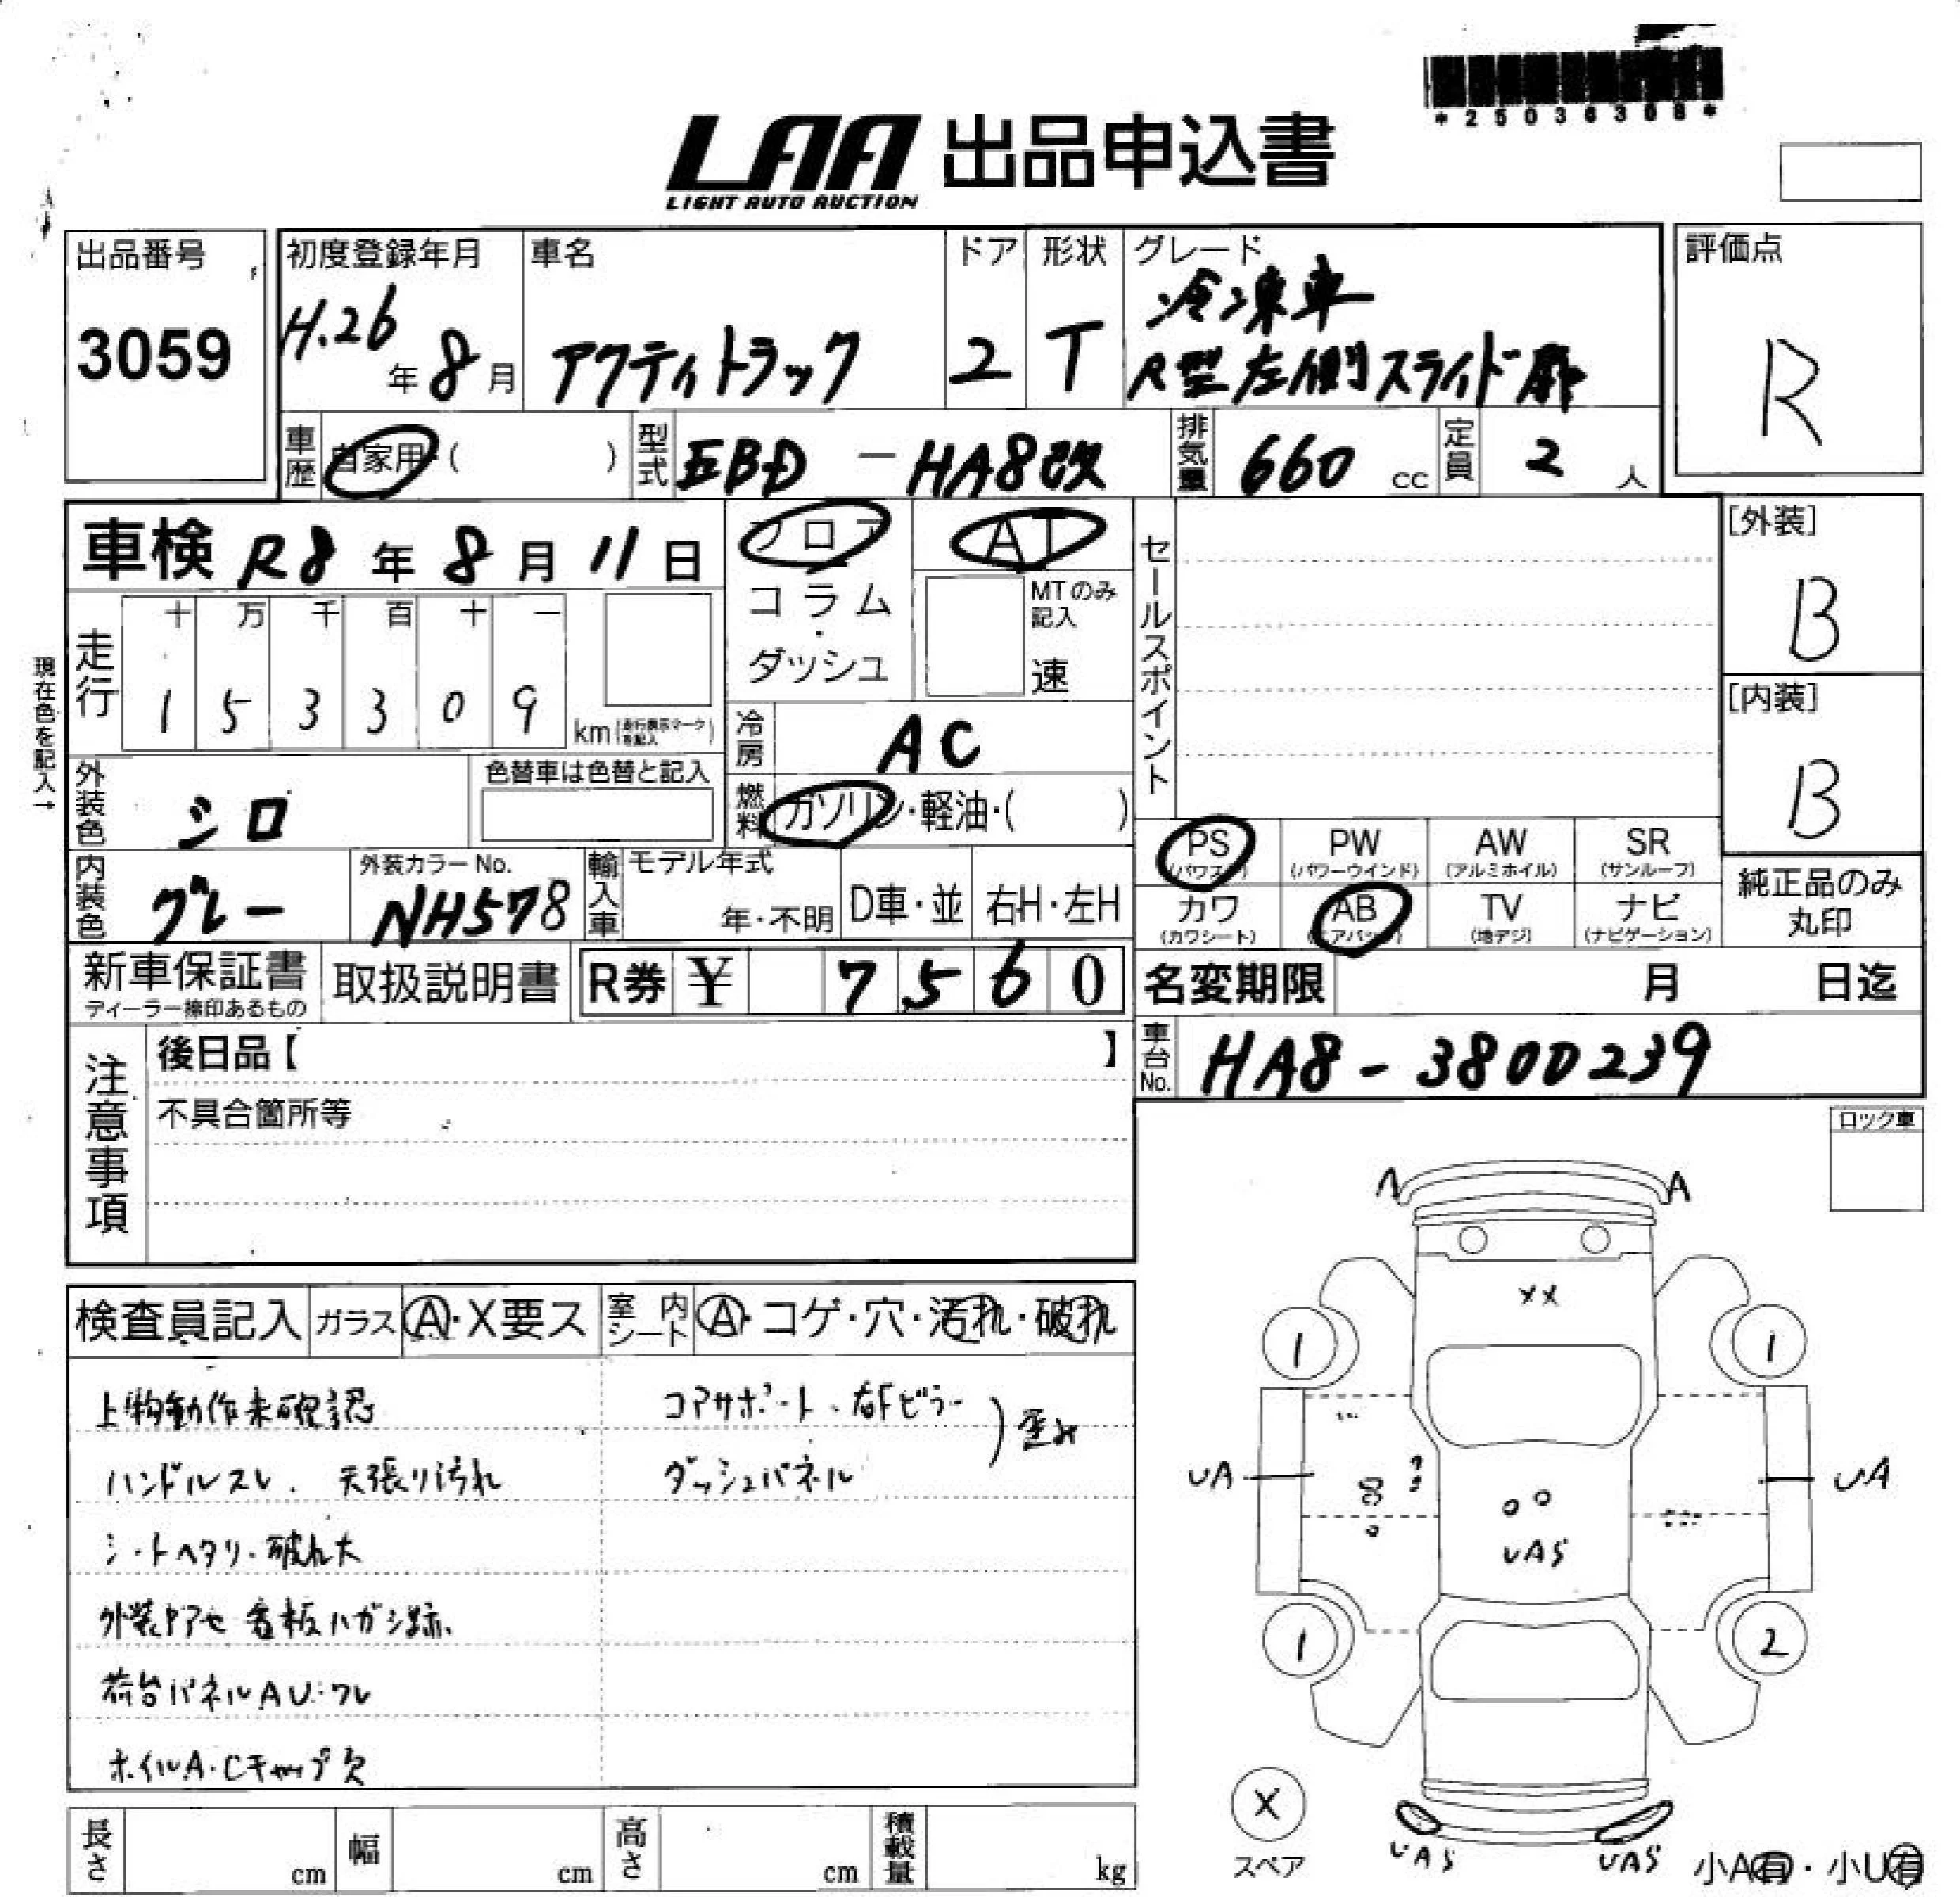 *25036308*
LAA 出品申込書
LIGHT AUTO AUCTION
出品番号
3059
初度登録年月
H.26年8月
車名
アクティトラック
ドア
2
形状
T
グレード
冷凍車
R型左側スライド扉
評価点
R
車歴 自家用・( )
型式 EBD - HA8改
排気量 660 cc
定員 2 人
車検 R8年8月11日
フロア
コラム・ダッシュ
AT
MTのみ記入
速
セールスポイント
[外装]
B
[内装]
B
現在色を記入→
走行
十 万 千 百 十 一
1 5 3 3 0 9 km(走行表示マークを記入)
冷房 AC
燃料 ガソリン・軽油・( )
外装色 シロ
色替車は色替と記入
内装色 グレー
外装カラーNo.
NH578
輸入車
モデル年式
年・不明
D車・並
右H・左H
PS
(パワステ)
PW
(パワーウインド)
AW
(アルミホイル)
SR
(サンルーフ)
カワ
(カワシート)
AB
(エアバック)
TV
(地デジ)
ナビ
(ナビゲーション)
純正品のみ
丸印
新車保証書
ディーラー捺印あるもの
取扱説明書
R券 ¥ 7560
名変期限 月 日迄
車台No. HA8-3800239
注意事項
後日品【 】
不具合箇所等
ロック車
検査員記入
ガラス A・X要ス
室内シート A・コゲ・穴・汚れ・破れ
上物動作未確認
ハンドルスレ、天張り汚れ
シートヘタリ・破れ大
外装ヤアセ 看板ハガシ跡
荷台パネルAU:ワレ
ホイルA・Cキャップ欠
コアサポート、右Fピラー
ダッシュパネル
)歪み
A A
XX
1 1
UA UA
UAS
1 2
X
スペア
UAS UAS
小A有・小U有
長さ cm
幅 cm
高さ cm
積載量 kg